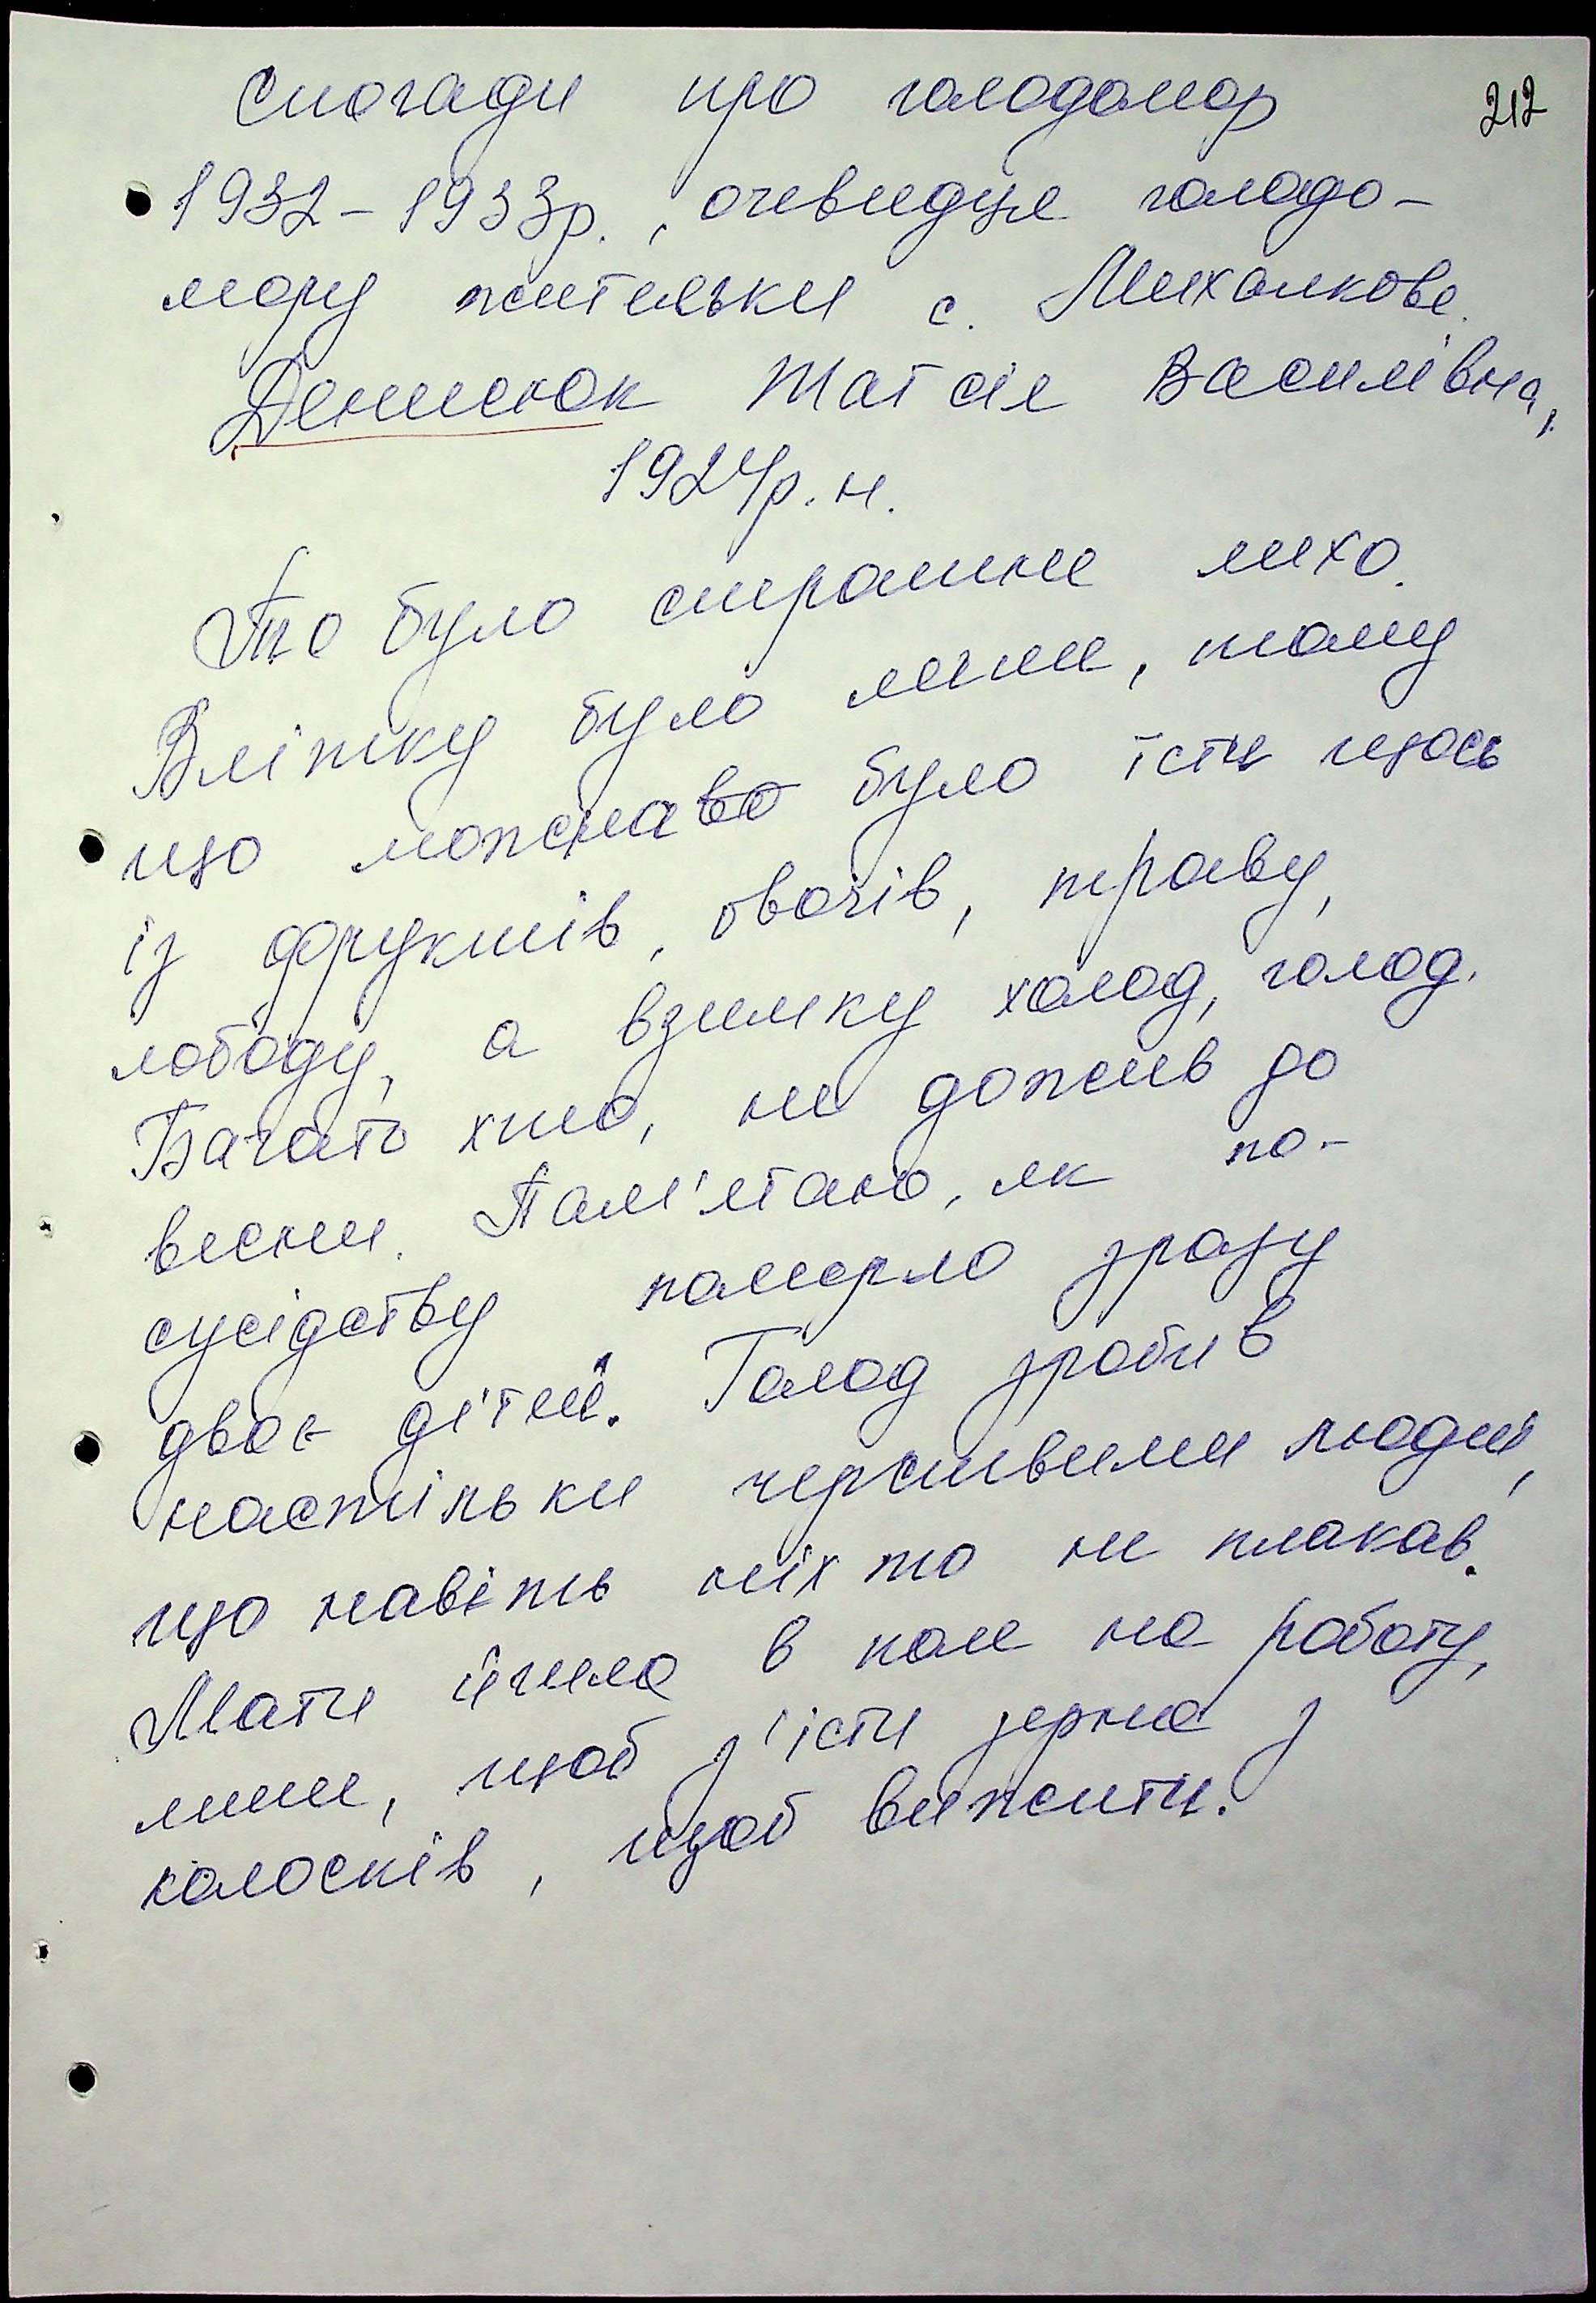 Спогади про голодомор
212
1932-1933р., очевидця голодо-
мору жительки с. Михалкове.
Денисюк Татсія Василівна,
1924р.н.
То було страшне лихо.
Влітку було легше, тому
що можнаво було їсти щось
із фруктів, овочів, траву,
лободу, а взимку холод, голод.
Багато хто, не дожив до
весни. Пам'ятаю, як по-
сусідству померло зразу
двоє дітей. Голод зробив
настільки черствими людей,
що навіть ніхто не плакав.
Мати йшла в поле на роботу,
лише, щоб з'їсти зерна з
колосків, щоб вижити.